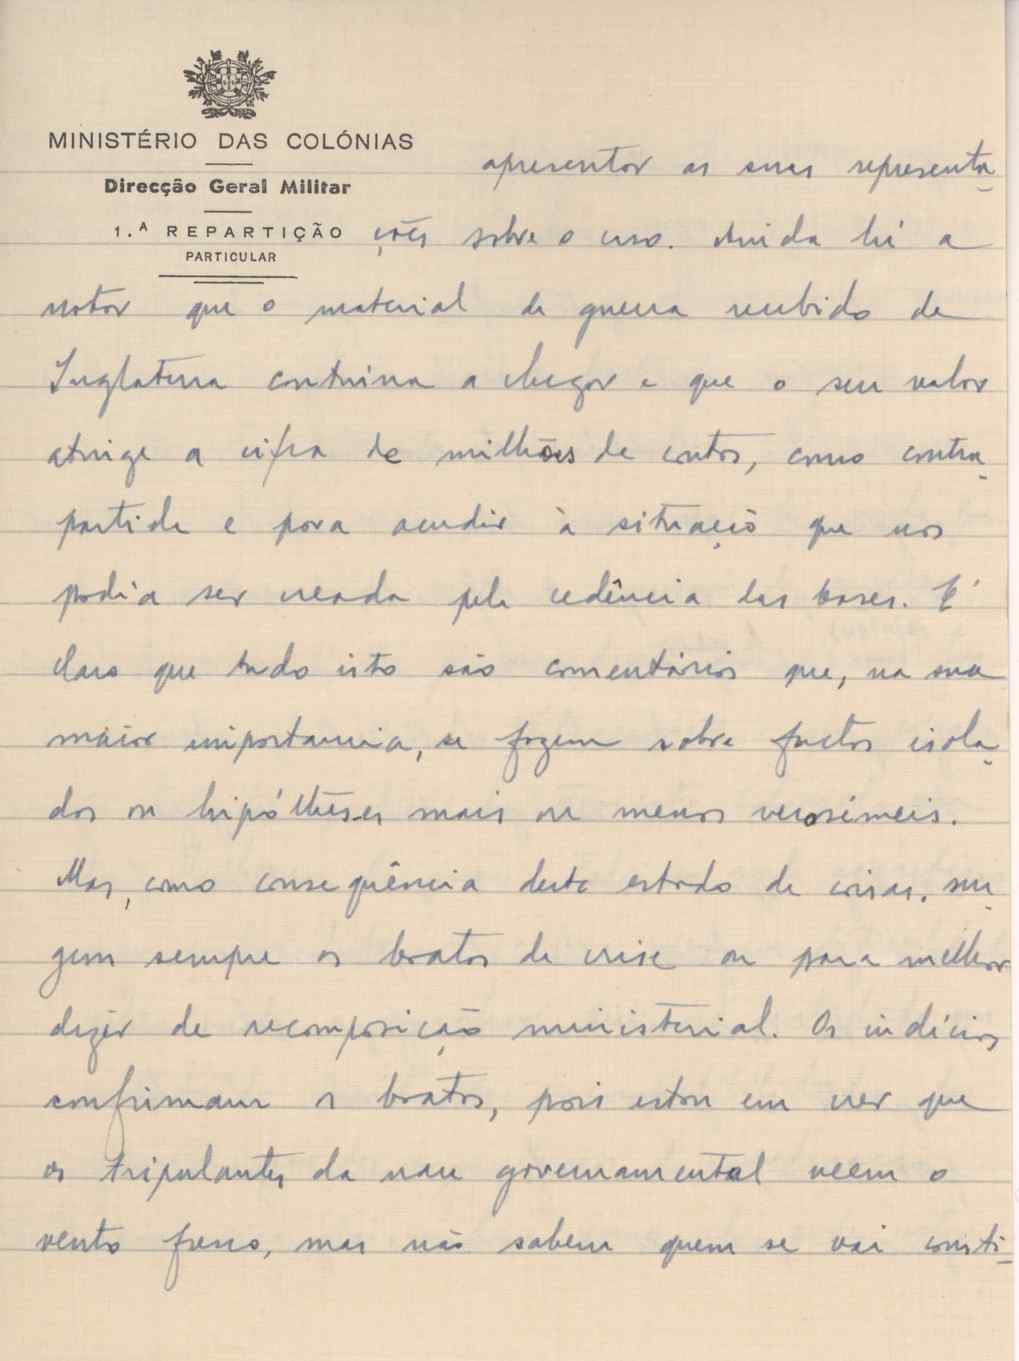 MINISTÉRIO DAS COLÓNIAS
Direcção Geral Militar
1.ª REPARTIÇÃO
PARTICULAR
apresentar as suas representa-
ções sobre o caso. Ainda há a
notar que o material de guerra recebido de
Inglaterra continua a chegar e que o seu valor
atinge a cifra de milhões de contos, como contra-
partida e para acudir à situação que nos
podia ser creada pela cedência das bases. É
claro que tudo isto são comentários que, na sua
maior importancia, se fazem sobre factos isola-
dos ou hipóthèses mais ou menos verosímeis.
Mas, como consequência deste estado de coisas, sur-
gem sempre os boatos de crise ou para melhor
dizer de recomposição ministerial. Os indícios
confirmam os boatos, pois estou em crer que
os tripulantes da nau governamental veem o
vento fresco, mas não sabem quem se vai consti-